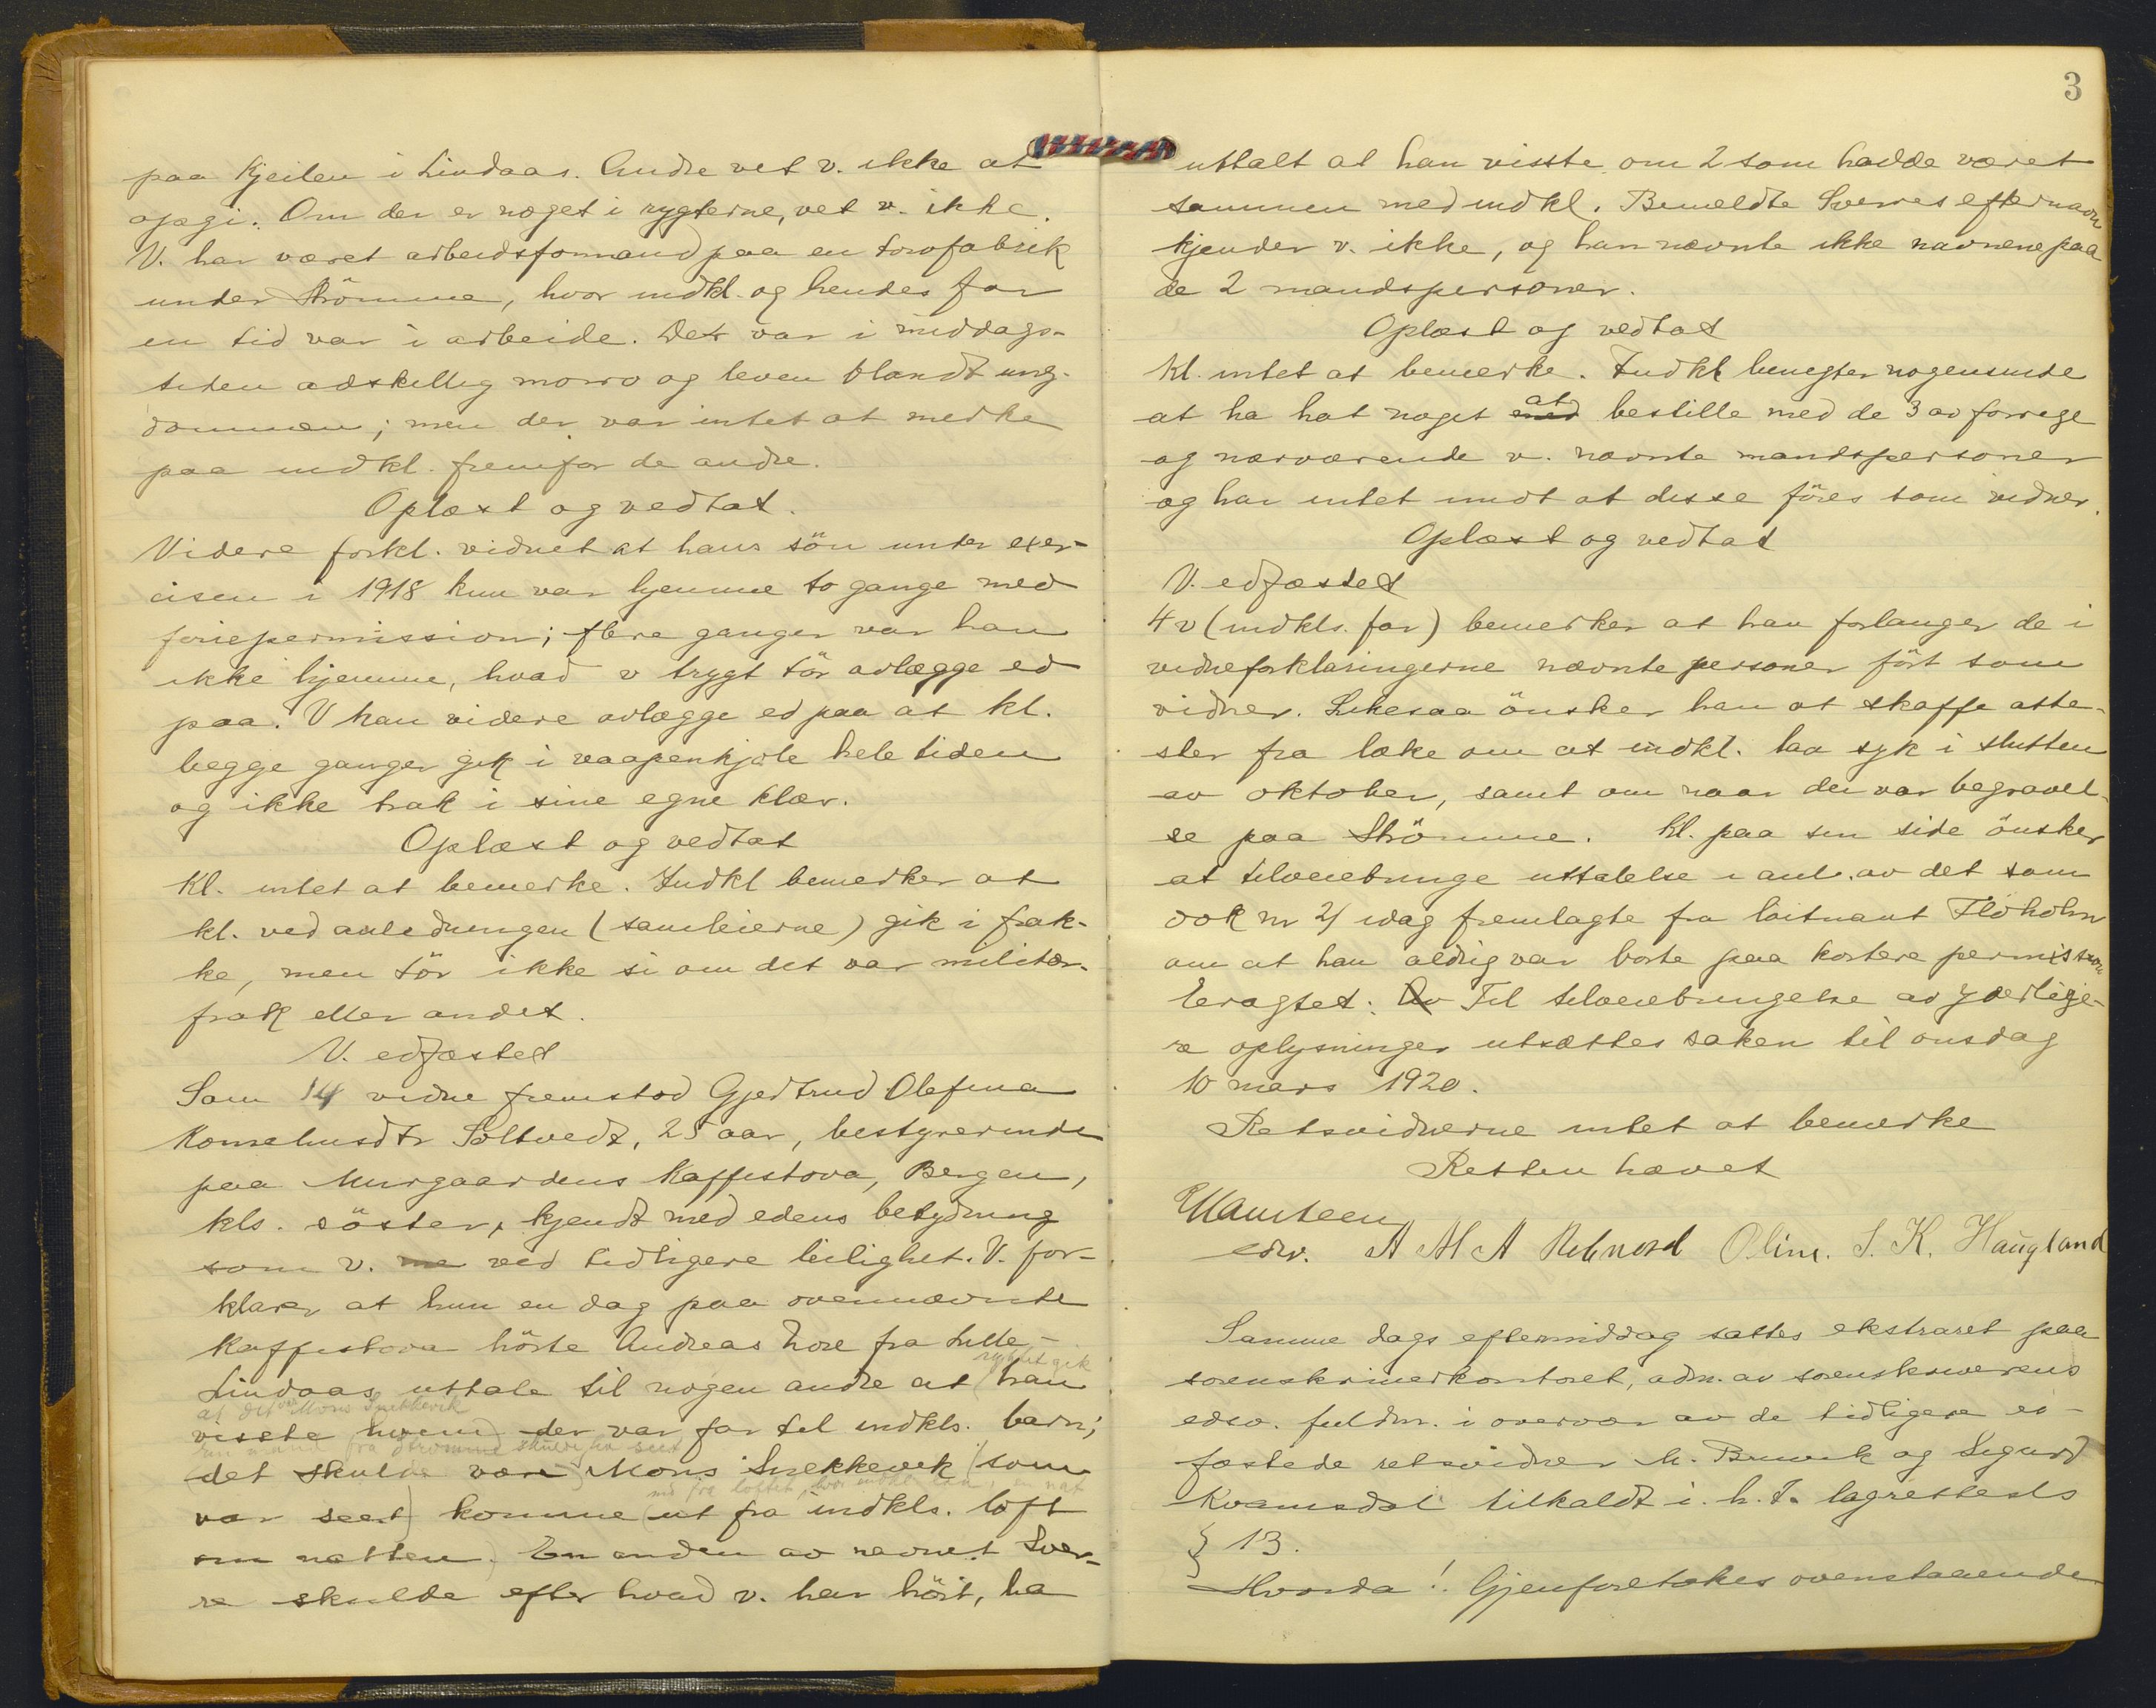 paa Kjeilen i Lindaas. Andre vet v. ikke at
opgi. Om der er noget i rygterne, vet v. ikke.
V. har været arbeidsformand paa en torvfabrik
under Strömme, hvor indkl. og hendes far
en tid var i arbeide. Det var i middags-
tiden adskillig morro og leven blandt ung-
dommen; men der var intet at merke
paa indkl. fremfor de andre.
Oplæst og vedtat.
Videre forkl. vidnet at hans sön under exer-
cisen i 1918 kun var hjemme to gange med
feriepermission; flere ganger var han
ikke hjemme, hvad v trygt tör avlægge ed
paa. V kan videre avlægge ed paa at kl.
begge ganger gik i vaapenkjole hele tiden
og ikke trak i sine egne klær.
Oplæst og vedtat
Kl. intet at bemerke. Indkl bemerker at
kl. ved anledningen (samleierne) gik i frak-
ke, men tör ikke si om det var militær-
frak eller andet.
V. edfæstet
Som 14 vidne fremstod Gjertrud Olefina
Korneliusdtr Soltvedt, 25 aar, bestyrerinde
paa Murgaardens Kaffistova, Bergen,
kls. söster, kjendt med edens betydning
som v. ved tidligere leilighet. V. for-
klarer at hun en dag paa ovennævnte
Kaffistova hörte Andreas Lore fra Lille-
ryktet gik
Lindaas uttale til nogen andre at (han
at det var Mons Snekkevik
visste hvem) der var far til indkls. barn;
en mand fra Strømme skulde ha seet
(det skulde være) Mons Snekkevik (som
ned fra loftet, hvor indkl. laa, en nat
var seet) komme (ut fra indkls. loft
om natten). En anden av navnet Sver-
re skulde efter hvad v. har hört, ha
3
uttalt at han visste om 2 som hadde været
sammen med indkl. Bemeldte Sverres efternavn
kjender v. ikke, og han nævnte ikke navnene paa
de 2 mandspersoner.
Oplæst og vedtat
Kl. intet at bemerke. Indkl benegter nogensinde
at ha hat noget med at bestille med de 3 av forrige
og nærværende v. nævnte mandspersoner
og har intet imot at disse föres som vidner.
Oplæst og vedtat
V. edfæstet
4 v (indkls. far) bemerker at han forlanger de i
vidneforklaringerne nævnte personer fört som
vidner. Likesaa önsker han at skaffe atte-
ster fra læke om at indkl. laa syk i slutten
av oktober, samt om naar der var begravel-
se paa Strömme. Kl. paa sin side önsker
at tilveiebringe uttalelse i anl. av det som
dok nr 2/ idag fremlagte fra löitnant Flöholm
om at han aldrig var borte paa kortere permission
eragtet: Av Til tilveiebringelse av yderlige-
re oplysninger utsættes saken til onsdag
10 mars 1920.
Retsvidnerne intet at bemerke
Retten hævet
edsv. A M A Rebnord Olinr. S. K. Haugland
Samme dags eftermiddag sattes ekstraret paa
sorenskriverkontoret, adm. av sorenskriverens
edsv. fuldm. i overvær av de tidligere ed-
fæstede retsvidner M. Brunvik og Sigurd
Kvamsdal tilkaldt i. h. t. lagrettesls
§ 13.
Hvorda! Gjenforetokes ovenstaaende